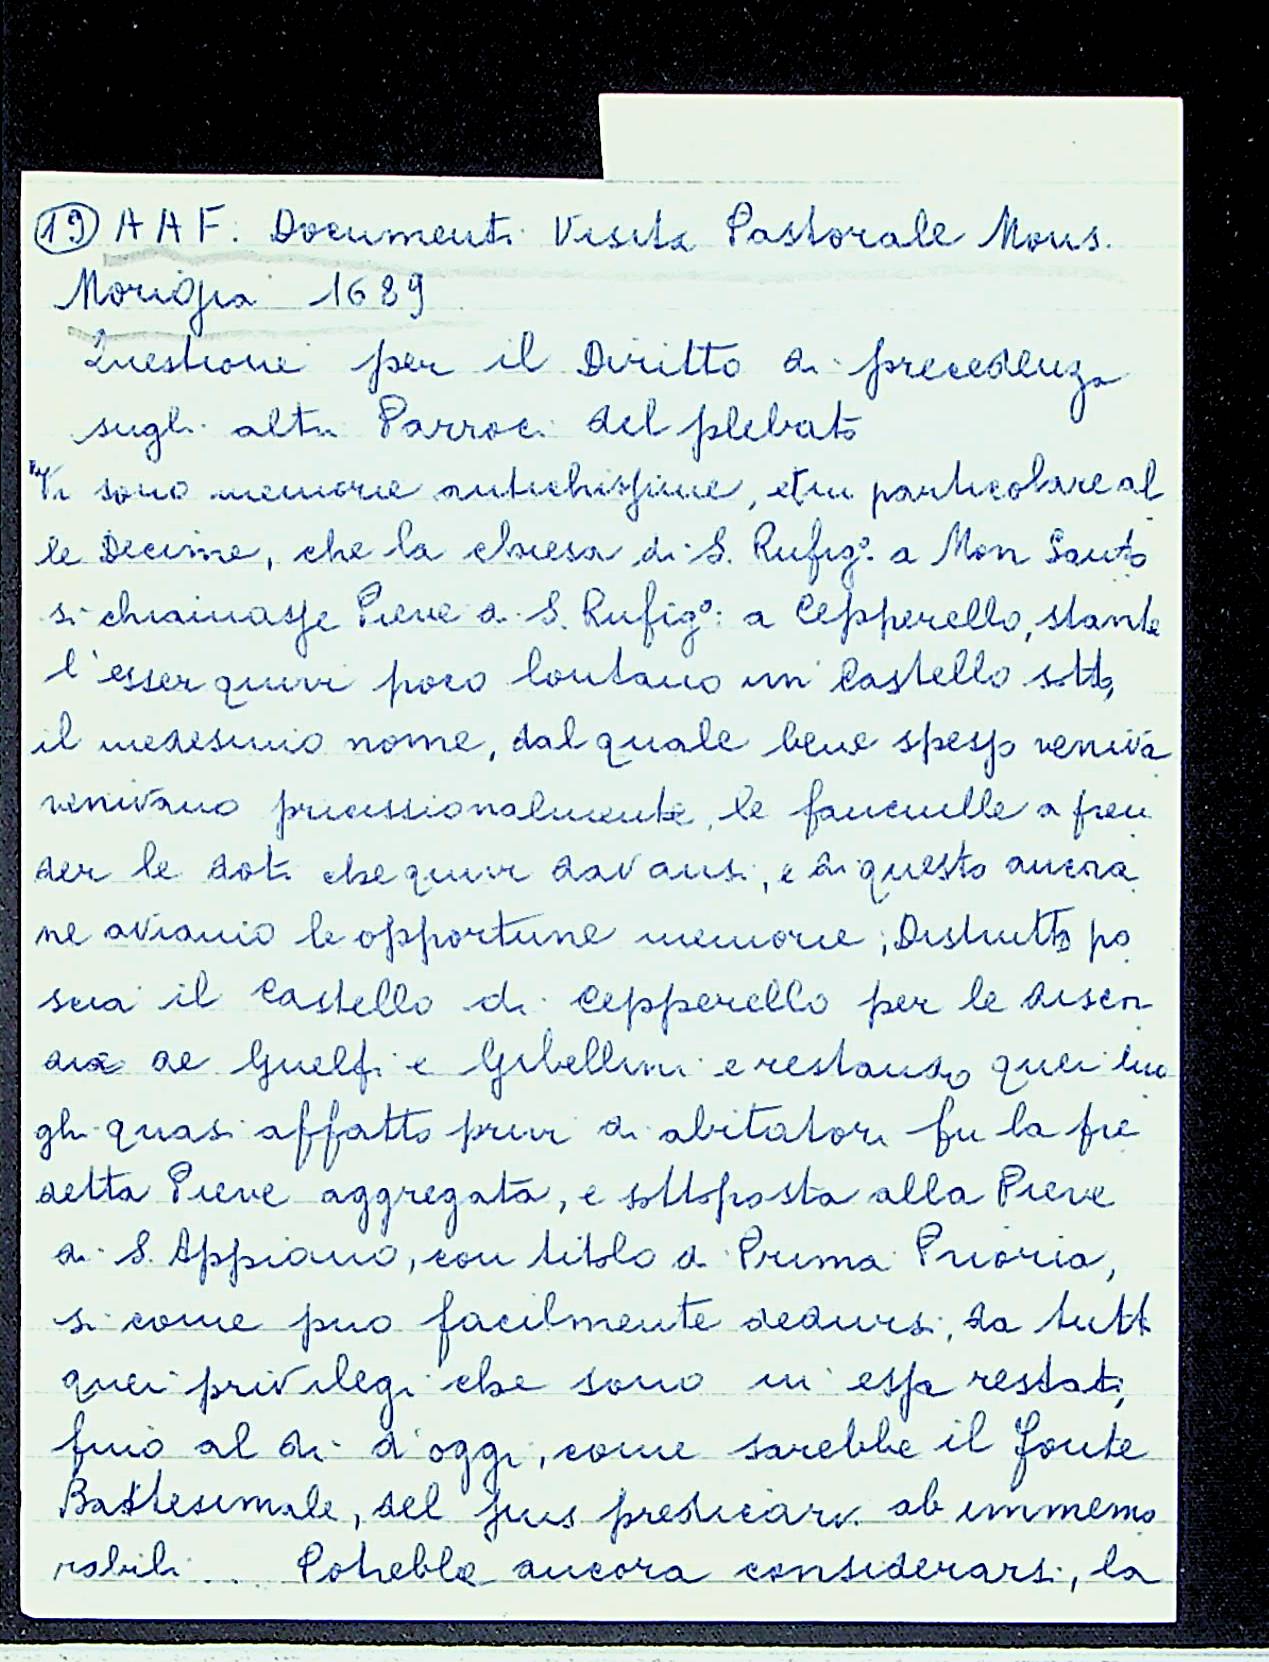 19 A A F. Documenti Visita Pastorale Mons.
Morigia 1689
Questione per il Diritto di precedenza
sugli altri Parroci del plebato
"Vi sono memorie antichissime, et in particolare al
le Decime, che la chiesa di S. Rufig°. a Mon Santo
si chiamasse Pieve di S. Rufig°: a Cepperello, stante
l'esser quivi poco lontano un Castello sotto
il medesimo nome, dal quale bene spesso veniva
venivano processionalmente, le fanciulle a pren
der le doti che quivi davansi, e di questo ancora
ne aviamo le opportune memorie; Distrutto po
scia il Castello di Cepperello per le discor
die de Guelfi e Gibellini e restando quei luo
ghi quasi affatto privi di abitatori fu la pre
detta Pieve aggregata, e sottoposta alla Pieve
di S. Appiano, con titolo di Prima Prioria,
si come puo facilmente dedursi, da tutti
quei privilegi che sono in essa restati,
fino al di d'oggi, come sarebbe il fonte
Battesimale, del jus predicari ab immemo
rabili ... Potrebbe ancora considerarsi, la